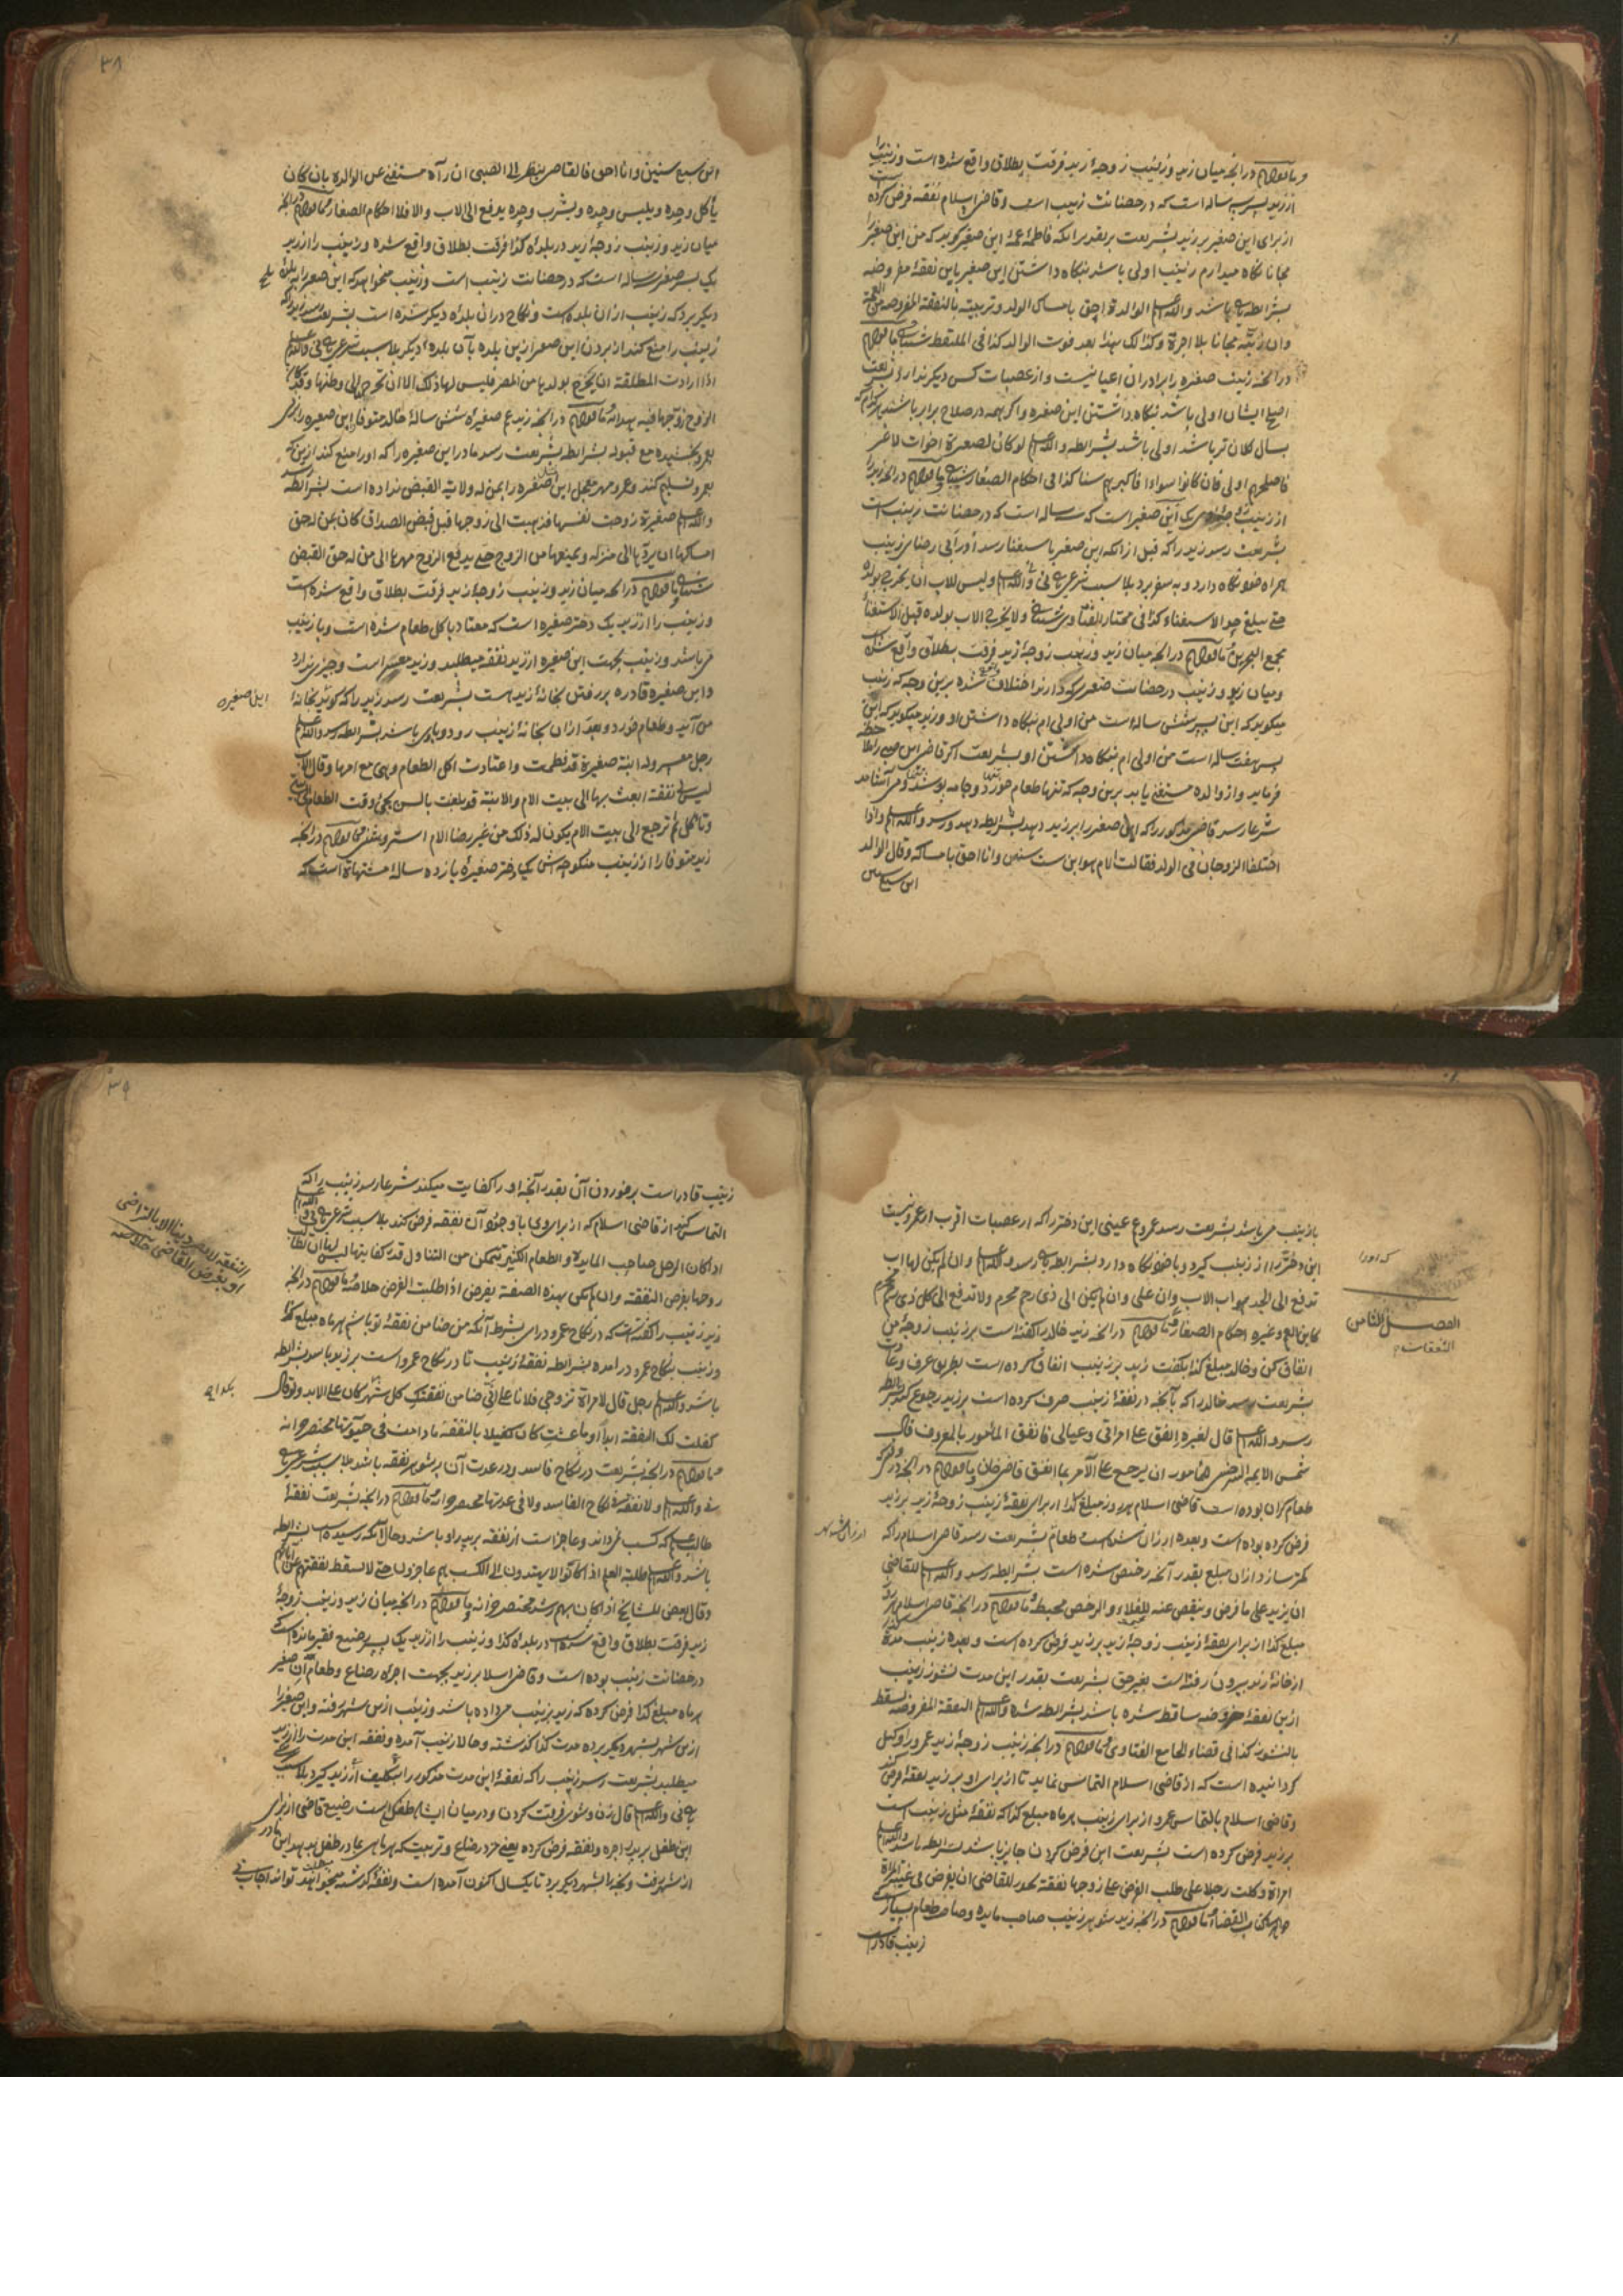 و ما قولهم در آنجه میان زید و زینب زوجهٔ زید فرقت بطلاق واقع شده است و زینب را
از زید پسر سه ساله است که در حضانت زینب است و قاضی اسلام نفقه فرض کرده
از برای این صغیر بر زید بشریعت بر تقدیر آنکه فاطمه عمهٔ این صغیر گوید که من این صغیر را
مجانا نگاه میدارم زینب اولی باشد بنگاه داشتن این صغیر باین نفقهٔ مفروضه
بشرائطه باشد والله اعلم الوالدة احق بامساک الولد و تربیته بالنفقة المفروضة من العمة
وان ربته مجانا بلا اجرة وکذلک هذا بعد فوت الوالد کذا فی الملتقط ما قولهم
در آنجه زینب صغیره را برادران اعیانیست و از عصبات کس دیگر ندارد بشریعت
اصلح ایشان اولی باشد بنگاه داشتن این صغیره و اگر همه در صلاح برابر باشند هر کدام که
بسال کلان تر باشد اولی باشد بشرائطه والله اعلم لو کان لصغیرة اخوات لاعیر
فاصلحهم اولی فان کانوا سواء فاکبرهم سنا کذا فی احکام الصغار ما قولهم در آنجه زید را
از زینب یک ابن صغیر است که سه ساله است که در حضانت زینب است
بشریعت رسد زید را که قبل از آنکه این صغیر باستغنا رسد او را بی رضای زینب
همراه خود نگاه دارد و به سفر برد بلا سبب شرعی والله اعلم ولیس للاب ان یخرج بولده
حتی یبلغ حد الاستغناء کذا فی مختار الفتاوی ولا یخرج الاب بولده قبل الاستغناء
مجمع البحرین ما قولهم در آنجه میان زید و زینب زوجهٔ زید فرقت بطلاق واقع شده
و میان زید و زینب در حضانت صغیری که دارند اختلاف شده برین وجه که زینب
میگوید که این پسر شش ساله است من اولی ام بنگاه داشتن او و زید میگوید که این
پسر هفت ساله است من اولی ام بنگاه داشتن او بشریعت اگر قاضی این صبی را
فرماید و از والده مستغنی یابد برین وجه که تنها طعام خورد و جامه پوشد و می آشامد
شرعا رسد قاضی مذکور را که این صغیر را بزید دهد بشرائطه رسد والله اعلم واذا
اختلفا الزوجان فی الولد فقالت الام هو ابن ست سنین وانا احق بامساکه وقال الوالد
ابن سبع سنین
٣٨
ابن سبع سنین وانا احق فالقاضی ینظر الی الصبی ان رآه مستغنی عن الوالدة بان کان
یأکل وحده ویلبس وحده ویشرب وحده یدفع الی الاب والا فلا احکام الصغار ما قولهم در آنجه
میان زید و زینب زوجهٔ زید در بلدهٔ کذا فرقت بطلاق واقع شده و زینب را از زید
یک پسر صغیر سه ساله است که در حضانت زینب است و زینب میخواهد که این صغیر را ببلدهٔ
دیگر برد که زینب از آن بلده است و نکاح در آن بلدهٔ دیگر شده است بشریعت رسد زید را که
زینب را منع کند از بردن این صغیر ازین بلده بآن بلدهٔ دیگر بلا سبب شرعی والله اعلم
اذا ارادت المطلقة ان یخرج بولدها من المصر فلیس لها ذلک الا ان تخرج الی وطنها وقد کان
الزوج زوجها فیه هدایه ما قولهم در آنجه زید عم صغیرهٔ شش سالهٔ خالد متوفا این صغیره را بزنی
بعمرو بخشیده مع قبوله بشرائطه بشریعت رسد مادر این صغیره را که او را منع کند ازین که
بعمرو تسلیم کند و عمرو مهر معجل این صغیره را بمن له ولایة القبض نداده است بشرائطه
والله اعلم صغیرة زوجت نفسها فذهبت الی زوجها قبل قبض الصداق کان لمن له حق
امساکها ان یردها الی منزله ویمنعها من الزوج حتی یدفع الزوج مهرها الی من له حق القبض
ما قولهم در آنجه میان زید و زینب زوجهٔ زید فرقت بطلاق واقع شده است
و زینب را از زید یک دختر صغیره است که معتاد باکل طعام شده است و با زینب
می باشد و زینب بجهت این صغیره از زید نفقه میطلبد و زید معسر است و چیزی ندارد
و این صغیره قادره بر رفتن بخانهٔ زید است بشریعت رسد زید را که گوید بخانهٔ
این صغیره
من آید و طعام خورد و بعد از آن بخانهٔ زینب رود و با وی باشد بشرائطه رسد والله اعلم
رجل معسر وله ابنة صغیرة قد فطمت واعتادت اکل الطعام وهی مع امها وقال الاب
لیس لی نفقة ابعث بها الی بیت الام والابنة قد بلغت بالسن یجیء وقت الطعام
وتأکل ثم ترجع الی بیت الام یکون له ذلک من غیر رضا الام ما قولهم در آنجه
زید متوفا را از زینب منکوحه اش یک دختر صغیرهٔ یازده سالهٔ مشتهاة است که
با زینب می باشد بشریعت رسد عمرو عم عینی این دختر را که از عصبات اقرب از عمرو نیست
این دختر را از زینب گیرد و با خود نگاه دارد بشرائطه رسد والله اعلم وان لم یکن لها اب
که او را
تدفع الی الجد هو اب الاب وان علی وان لم یکن الی ذی رحم محرم ولا تدفع الی کل ذی رحم محرم
الفصل الثامن
النفقات
کابن العم وغیره احکام الصغار ما قولهم در آنجه زید خالد را گفته است بر زینب زوجهٔ من
انفاق کن و خالد مبلغ کذا بگفت زید بر زینب انفاق کرده است بطریق عرف و عادت
بشریعت رسد خالد را که بآنچه در نفقهٔ زینب صرف کرده است بر زید رجوع کند بشرائطه
رسد والله اعلم قال لغیره انفق علی امرأتی وعیالی فانفق المأمور بالمعروف قال
شمس الایمة السرخسی للمأمور ان یرجع علی الآمر بما انفق قاضی خان ما قولهم در آنجه در وقتی که
طعام گران بوده است قاضی اسلام هر روز مبلغ کذا از برای نفقهٔ زینب زوجهٔ زید بر زید
فرض کرده بوده است و بعده ارزان شده است طعام بشریعت رسد قاضی اسلام را که
کمتر سازد از آن مبلغ بقدر آنچه رخیص شده است بشرائطه رسد والله اعلم للقاضی
ان یزید علی ما فرض وینقص عنه للغلاء والرخص محیط ما قولهم در آنجه قاضی اسلام
مبلغ کذا از برای نفقهٔ زینب زوجهٔ زید بر زید فرض کرده است و بعده زینب مدة
از خانهٔ زید بیرون رفته است بغیر حق بشریعت بقدر این مدت نشوز زینب
ازین نفقهٔ مفروضه ساقط شده باشد بشرائطه شده والله اعلم النفقة المفروضة یسقط
بالنشوز کذا فی قضاء الجامع الفتاوی ما قولهم در آنجه زینب زوجهٔ زید عمرو را وکیل
گردانیده است که از قاضی اسلام التماس نماید تا از برای او بر زید نفقه فرض کند
و قاضی اسلام بالتماس عمرو از برای زینب هر ماه مبلغ کذا که نفقهٔ مثل زینب است
بر زید فرض کرده است بشریعت این فرض کردن جایز باشد بشرائطه باشد والله اعلم
امرأة وکلت رجلا علی طلب الفرض علی زوجها نفقة یجوز للقاضی ان یفرض فی غیبة المرأة
کتاب القضا ما قولهم در آنجه زید شوهر زینب صاحب مایده و صاحب طعام بسیار است
زینب قادر است
٣٩
زینب قادر است بر خوردن آن بقدر آنچه او را کفایت میکند شرعا رسد زینب را که
التماس کند از قاضی اسلام که از برای وی با وجود آن نفقه فرض کند بلا سبب شرعی والله اعلم
النفقة لا تصیر دینا الا بالتراضی
او بفرض القاضی خلاصه
اذا کان الرجل صاحب المایدة والطعام الکثیر تتمکن من التناول قدر کفایتها لیس لها ان تطالب
زوجها بفرض النفقة وان لم تکن بهذه الصفة یفرض اذا طلبت الفرض خلاصه ما قولهم در آنجه
زید زینب را گفته است که در نکاح عمرو درای بشرط آنکه من ضامن نفقهٔ تو باشم هر ماه مبلغ کذا
و زینب بنکاح عمرو در آمده بشرائطه نفقهٔ زینب تا در نکاح عمرو است بر زید باشد بشرائطه
باشد والله اعلم رجل قال لامرأة تزوجی فلانا علی انی ضامن نفقتک کل شهر کان علی الابد ولو قال
کفلت لک النفقة ابدا او ما عشت کان کفیلا بالنفقة ما دامت فی حیوتها مختصر خزانه
ما قولهم در آنجه بشریعت در نکاح فاسد و در عدت آن بر شوهر نفقه باشد بلا سبب شرعی
والله اعلم ولا نفقة فی نکاح الفاسد ولا فی عدتها مختصر خزانه ما قولهم در آنجه بشریعت نفقهٔ
طالب علم که کسب نمیداند و عاجز است از نفقه بر پدر او باشد و حال آنکه رسیده است بشرائطه
باشد والله اعلم طلبة العلم اذا کانوا لا یهتدون الی الکسب هم عاجزون حتی لا تسقط نفقتهم عن آبائهم
وقال بعض المشایخ اذا کان بهم رشد مختصر خزانه ما قولهم در آنجه میان زید و زینب زوجهٔ
زید فرقت بطلاق واقع شده است در بلدهٔ کذا و زینب را از زید یک پسر رضیع فقیر مانده است که
در حضانت زینب بوده است و قاضی اسلام بر زید بجهت اجرهٔ رضاع و طعام آن صغیر
هر ماه مبلغ کذا فرض کرده که زید بزینب می داده باشد و زینب ازین شهر رفته و این صغیر را
ازین شهر بشهر دیگر برده مدت کذا گذشته و حالا زینب آمده و نفقهٔ این مدت را از زید
میطلبد بشریعت رسد زینب را که نفقهٔ این مدت مذکور را بتکلیف از زید گیرد بلا سبب
والله اعلم قال زن و شوی فرقت کردن و در میان ایشان طفلی است رضیع قاضی از برای
این طفل بر پدر اجره و نفقه فرض کرده یعنی مزد رضاع و تربیت که هر ماهی بمادر طفل بدهد این مادر
از شهر رفت و بچه را بشهر دیگر برد تا یکسال اکنون آمده است و نفقهٔ گذشته میخواهد تواند اجاب